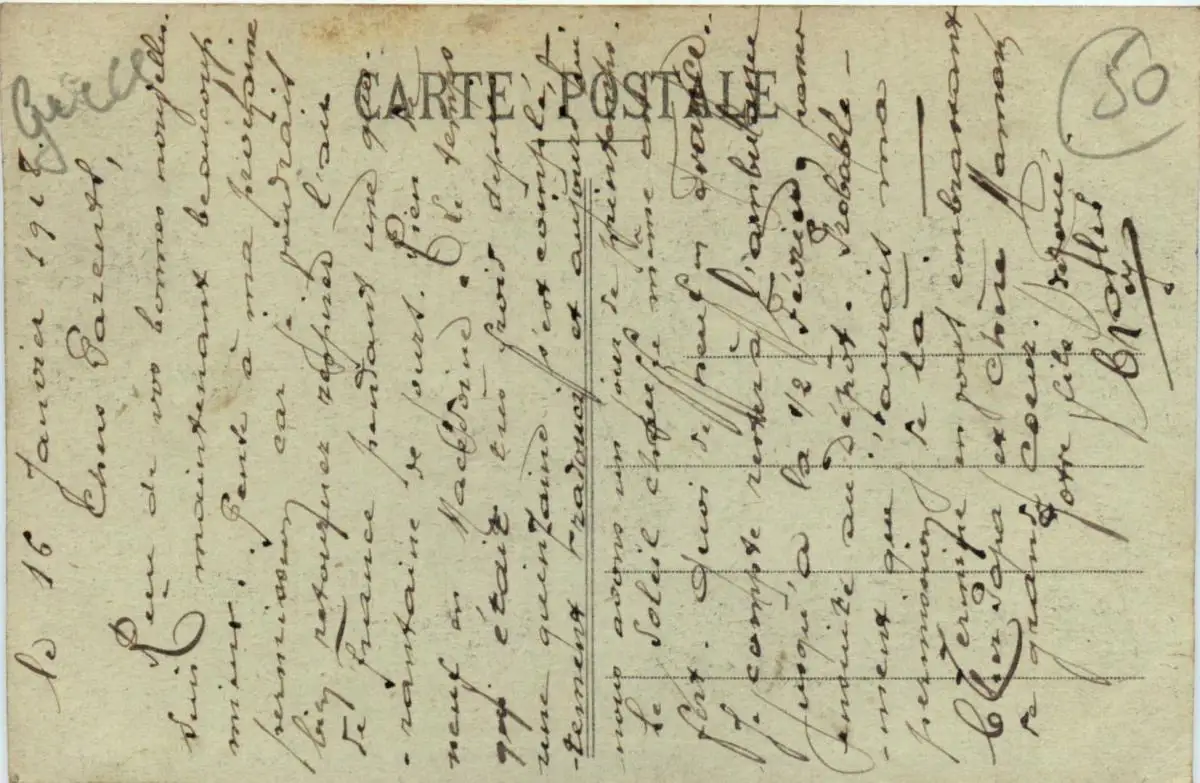 CARTE POSTALE
Grèce
50
le 16 Janvier 1918.
Chers Parents,
Reçu de vos bonnes nouvelles.
suis maintenant beaucoup
mieux. Pense à ma prochaine
permission car je voudrais
bien retourner respirer l'air
de France pendant une qua-
-rantaine de jours. Rien de
neuf en Macédoine. Le temps
qui était très froid depuis
une quinzaine s'est
-tement radouci et aujourd'hui
nous avons un jour de printemps.
Le Soleil chauffe même assez
fort. Quoi de neuf en France.
Je compte rester à l'ambulance
jusqu'à la 1/2 Février, pour
ensuite au dépôt. Probable-
-ment que j'aurais ma
permission de là.
Termine en vous embrassant
Cher Papa et Chère Maman
de grand Coeur.
Votre fils dévoué,